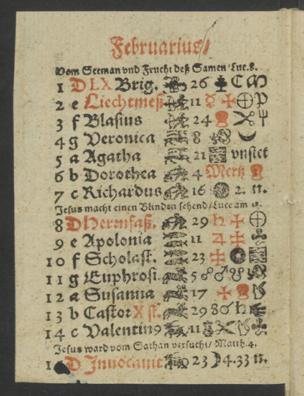 Februarius/
Vom Seeman vnd Frucht deß Samen/Luc.8.
1 D LX Brig. 26
2 e Liechtmeß 11
3 f Blasius 24
4 g Veronica 8
5 a Agatha 21 vnsict
6 b Dorothea 4 Mertz
7 c Richardus 16 2. n.
Jesus macht einen Blinden sehend/Luce am 18.
8 D Herrnfaß. 29
9 e Apolonia 11
10 f Scholast. 23
11 g Euphrosi. 5
12 a Susanna 17
13 b Castor X st. 29
14 c Valentin9 11
Jesus ward vom Sathan versucht/Matth.4.
D Inuocauit 23 4.33 n.